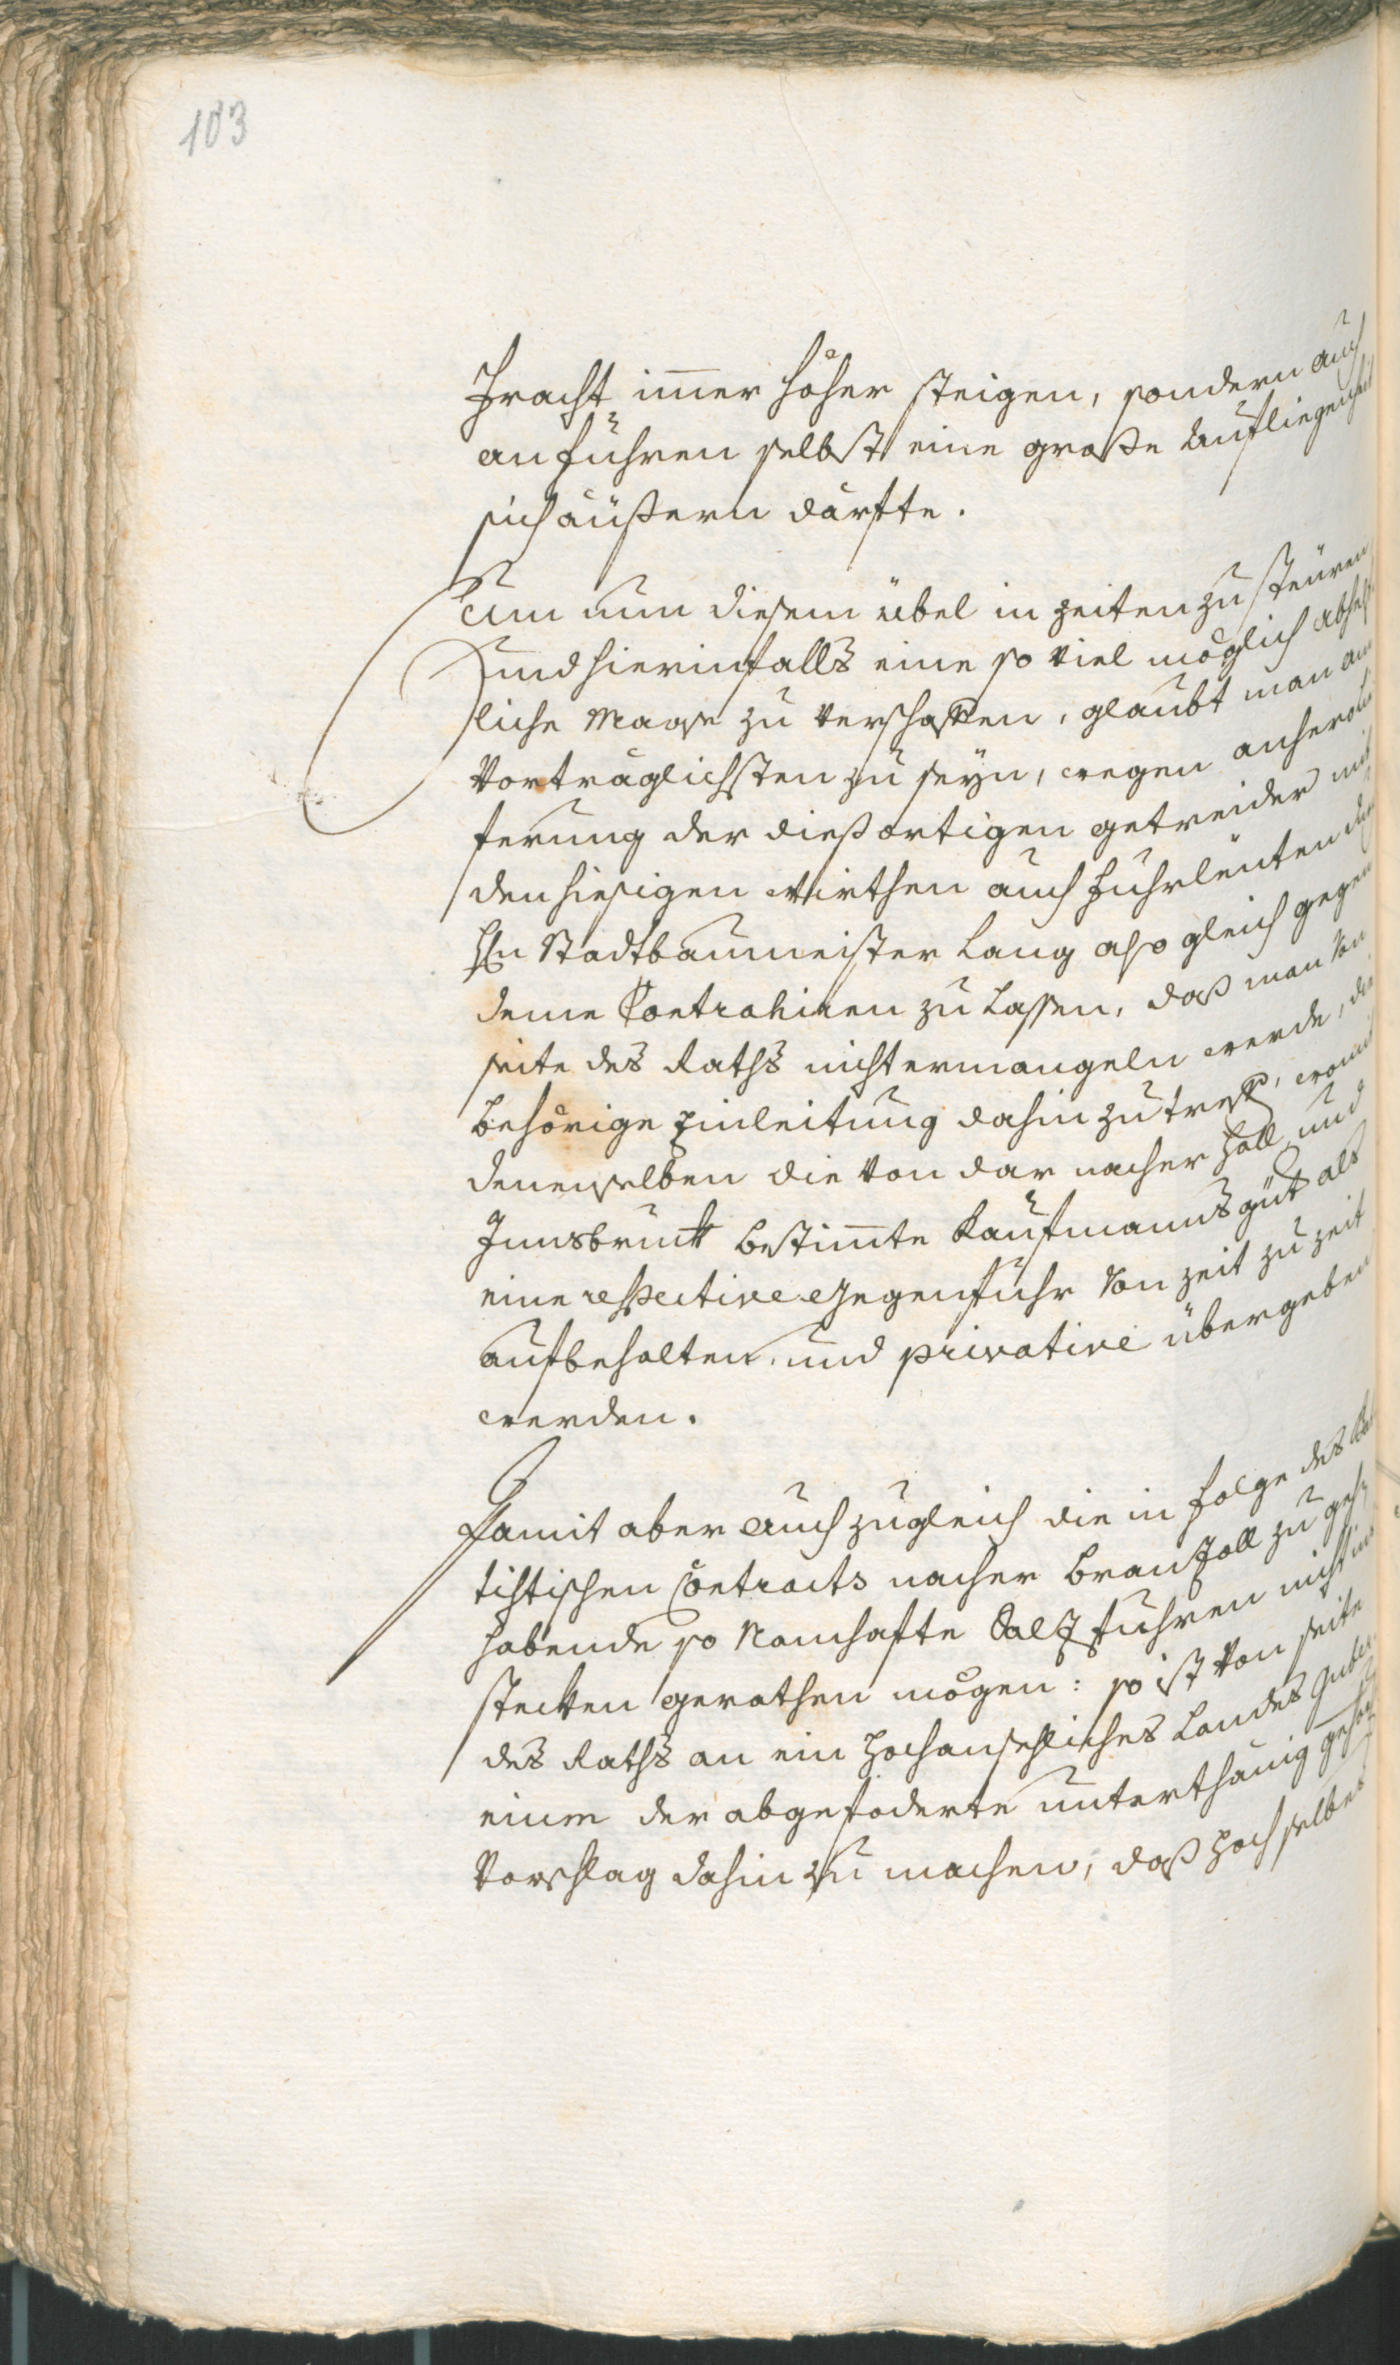 103
Fracht im̄er höher steigen, sondern auch
an fuhren selbst eine große Aufliegenheit
sich äußern därfte.
Um nun diesem übel in zeiten zu steüren
und hierinfalls eine so viel möglich
liche Masse zu verschaffen, glaubt man am
vorträglichsten zu seyn, wegen
ferung der dießortigen getreider mit
den hiesigen Wirthen auch fuhrleüten den
H̄n Stadtbaumeister Lang also gleich gegen
deme Contrahiren zu lassen, daß man von
seite des Raths nicht ermangeln werde, die
behörige Einleitung dahin zu treffen, womit
denenselben die von dar nacher Hall und
Innsbruck bestim̄te Kaufmanns güter als
eine respective gegenfuhr von zeit zu zeit
aufbehalten, und privative übergeben
werden.
Damit aber auch zugleich die in folge des
tistischen Contracts nacher Branzoll zu gehen
habende so Namhafte Salzfuhren nicht ins
stecken gerathen mögen: so ist von seite
des Raths an ein hochansehliches Landes Guber-
nium der abgefoderte unterthänig gehors
Vorschlag dahin zu machen, daß hochselbes